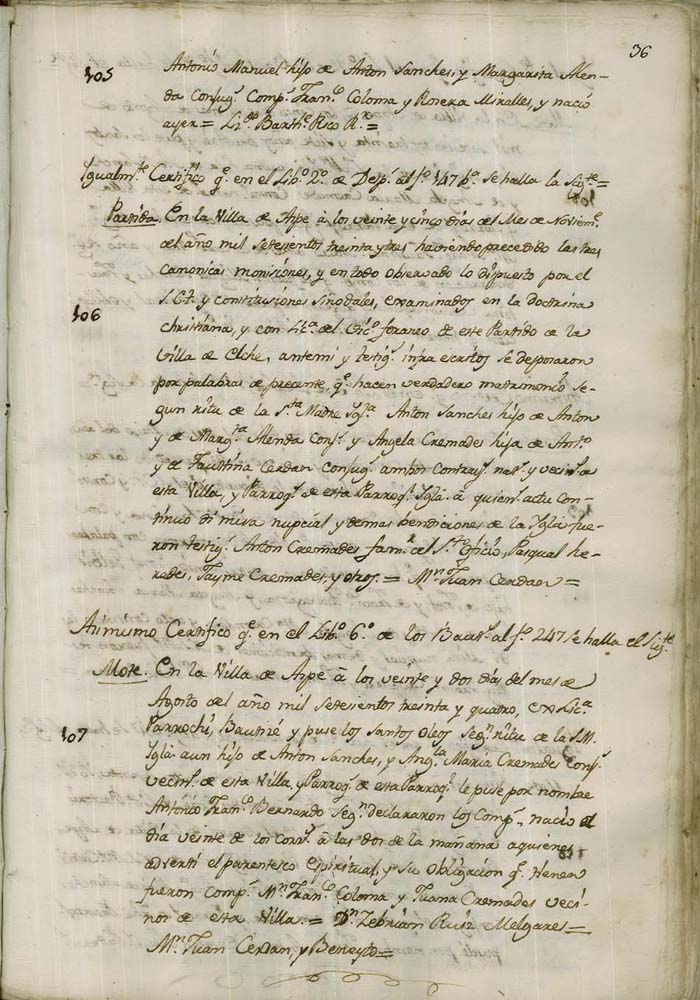 36
105
Antonio Manuel hijo de Anton Sanches, y Margarita Alen-
da Conjug.ˢ Comp.ˢ Fran.ᶜᵒ Coloma y Miralles, y nació
ayer = Li.ᵈᵒ Barth.ᵉ Rico R.ᵒʳ =
Igualm.ᵗᵉ Certifico q.ᵉ en el Lib.ᵒ 2.º de Dep.ˢ al f.º 147 b.ᵃ se halla la Sig.ᵗᵉ =
Partida. En la Villa de Aspe à los veinte y cinco dias del Mes de Noviem.ᵉ
del año mil Setesientos treinta y tres haviendo precedido las tres
canonicas monisiones, y en todo observado lo dispuesto por el
S. C.ᵗ y constitusiones sinodales, examinados en la doctrina
106
christiana, y con Lic.ᵃ del Vic.º foraneo de este Partido de la
Villa de Elche, antemi y testig.ˢ infraescritos se desposaron
por palabras de presente, q.ᵉ hacen verdadero matrimonio se-
gun ritu de la S.ᵗᵃ Madre Igl.ᵃ Anton Sanches hijo de Anton
y de Marg.ᵗᵃ Alenda Conj.ˢ y Angela Cremades hija de Ant.º
y de Faustina Cerdan conjug.ˢ ambos contray.ˢ nat.ˢ y vecin.ˢ de
esta Villa, y Parroq.ˢ de esta Parroq.ˡ Iglª. à quien.ˢ actu con-
tinuo di misa nupcial y demas bendiciones de la Iglª fue-
ron testig.ˢ Anton Cremades fam.ʳ del S.ᵗᵒ Oficio, Pasqual he-
rades, Jayme Cremades, y otros. = M.ⁿ Juan Cerdan =
Asimismo Certifico q.ᵉ en el Lib.º 6.º de los Baut.ˢ al f.º 247 se halla el Sig.ᵗᵉ
Mote. En la Villa de Aspe à los veinte y dos dias del mes de
Agosto del año mil setesientos treinta y quatro, ex Lic.ᵃ
107
Parrochi, Bautizé y puse los Santos Oleos seg.ⁿ ritu de la S. M.
Iglª. aun hijo de Anton Sanches, y Ang.ˡᵃ Maria Cremades Conj.ˢ
vecin.ˢ de esta Villa, y Parroq.ˢ de esta Parroq.ˡ le puse por nombre
Antonio Fran.ᶜᵒ Bernardo seg.ⁿ declararon los Comp.ˢ nació el
dia veinte de los corr.ˢ à las dos de la mañana aquienes
advertí el parentesco Espiritual, y su obligacion q.ᵉ tienen
fueron Comp.ˢ M.ⁿ Fran.ᶜᵒ Coloma y Juana Cremades veci-
nos de esta Villa. = D.ⁿ Zebrian Ruiz Melgares =
M.ⁿ Juan Cerdan, y Beneyto =